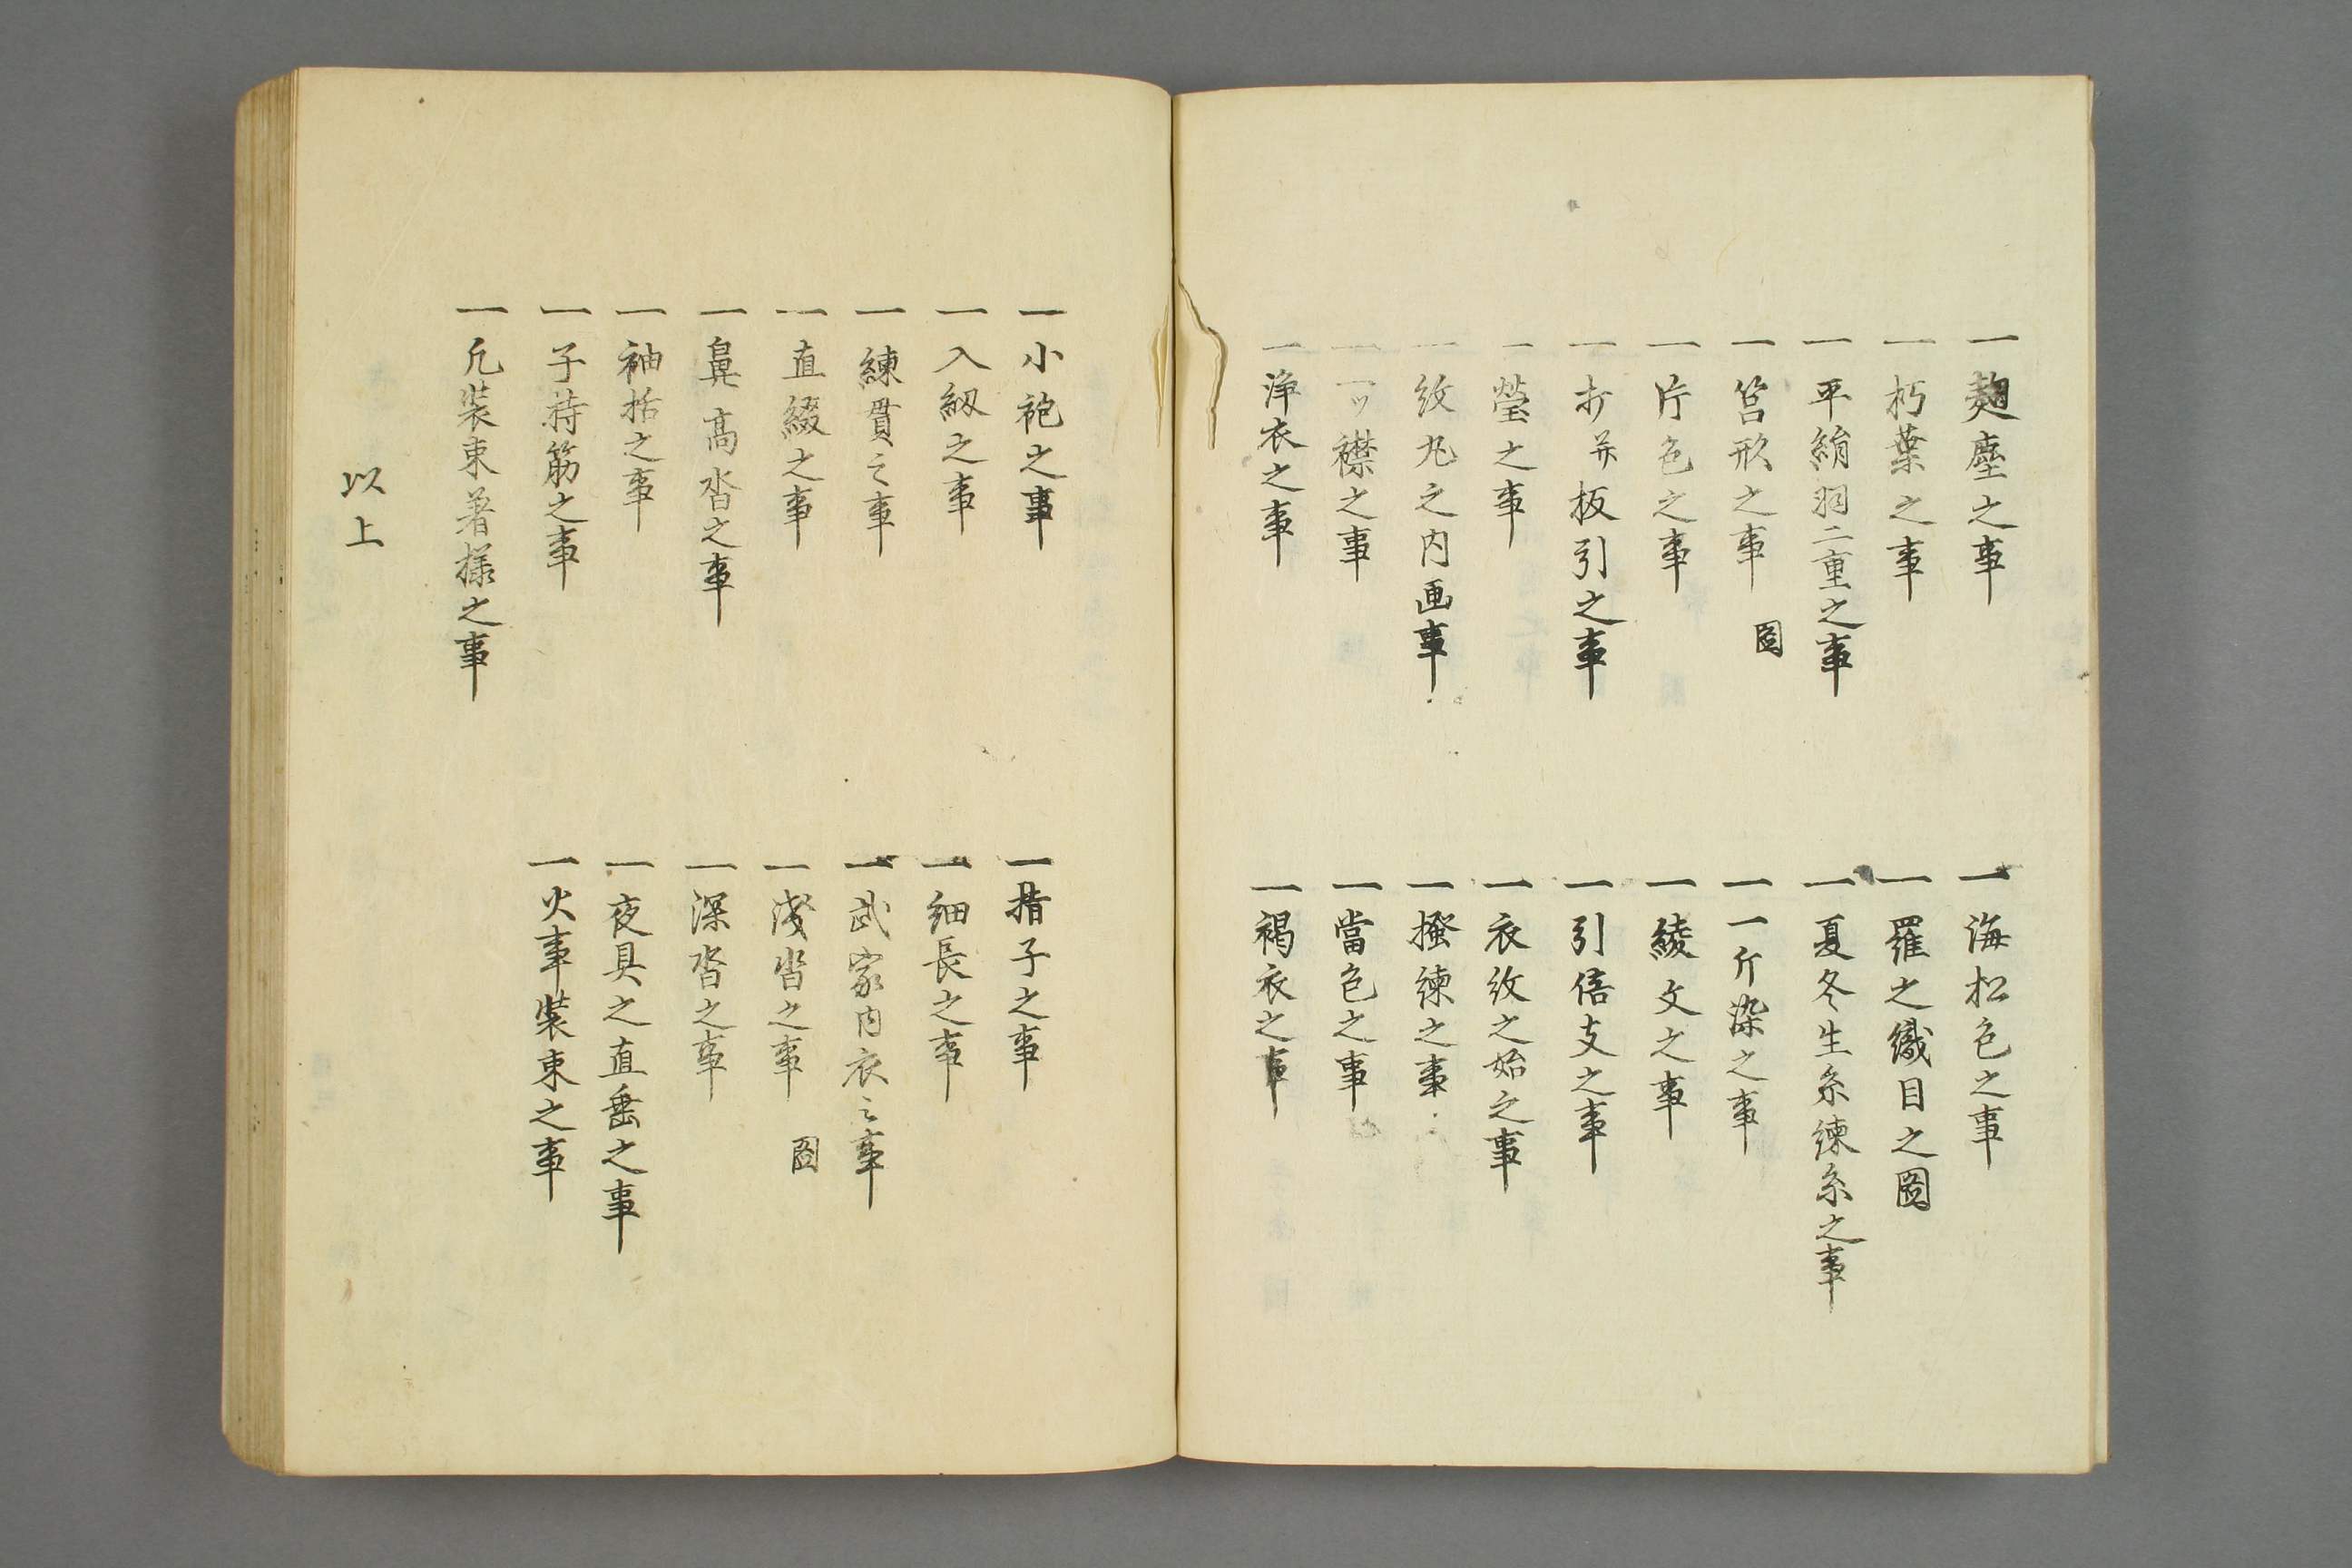 一麹塵之事
一海松色之事
一朽葉之事
一羅之織目之圖
一平絹羽二重之事
一夏冬生糸練糸之事
一筥形之事 圖
一一斤染之事
一片色之事
一綾文之事
一打并板引之事
一引倍支之事
一瑩之事
一衣紋之始之事
一紋丸之内画事
一掻練之事
一一ツ襟之事
一當色之事
一浄衣之事
一褐衣之事
一小袍之事
一指子之事
一入紐之事
一細長之事
一練貫之事
一武家内衣之事
一直綴之事
一浅沓之事 圖
一鼻高沓之事
一深沓之事
一袖括之事
一夜具之直垂之事
一子持筋之事
一火事装束之事
一凡装束著様之事
以上